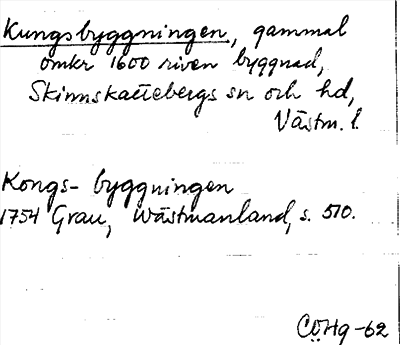 Kungsbyggningen, gammal
omkr 1600 riven byggnad,
Skinnskattebergs sn och hd,
Västm. l.
Kongs- byggningen
1754 Grau, Wästmanland, s. 510.
CÖHg -62